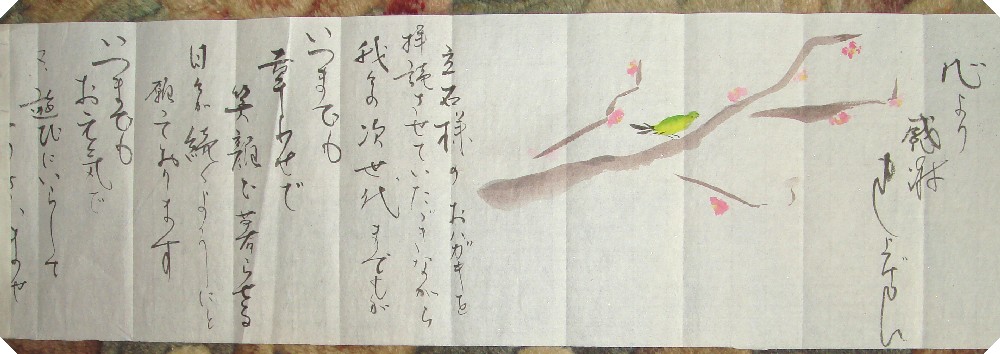 心より
感謝
立石様のおハガキを
拝読させていただきながら
我々の次世代までもが
いつまでも
幸しせで
笑顔で暮らせる
日が続くようにと
願っております
いつまでも
お元気で
又遊びにいらして
いませ